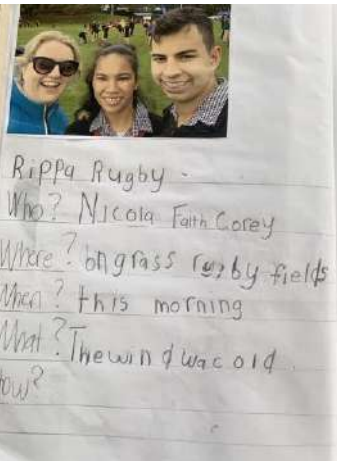 Rippa Rugby.
Who? Nicola Faith Corey
Where? on grass rugby fields
When? this morning
What? The wind wac old.
How?